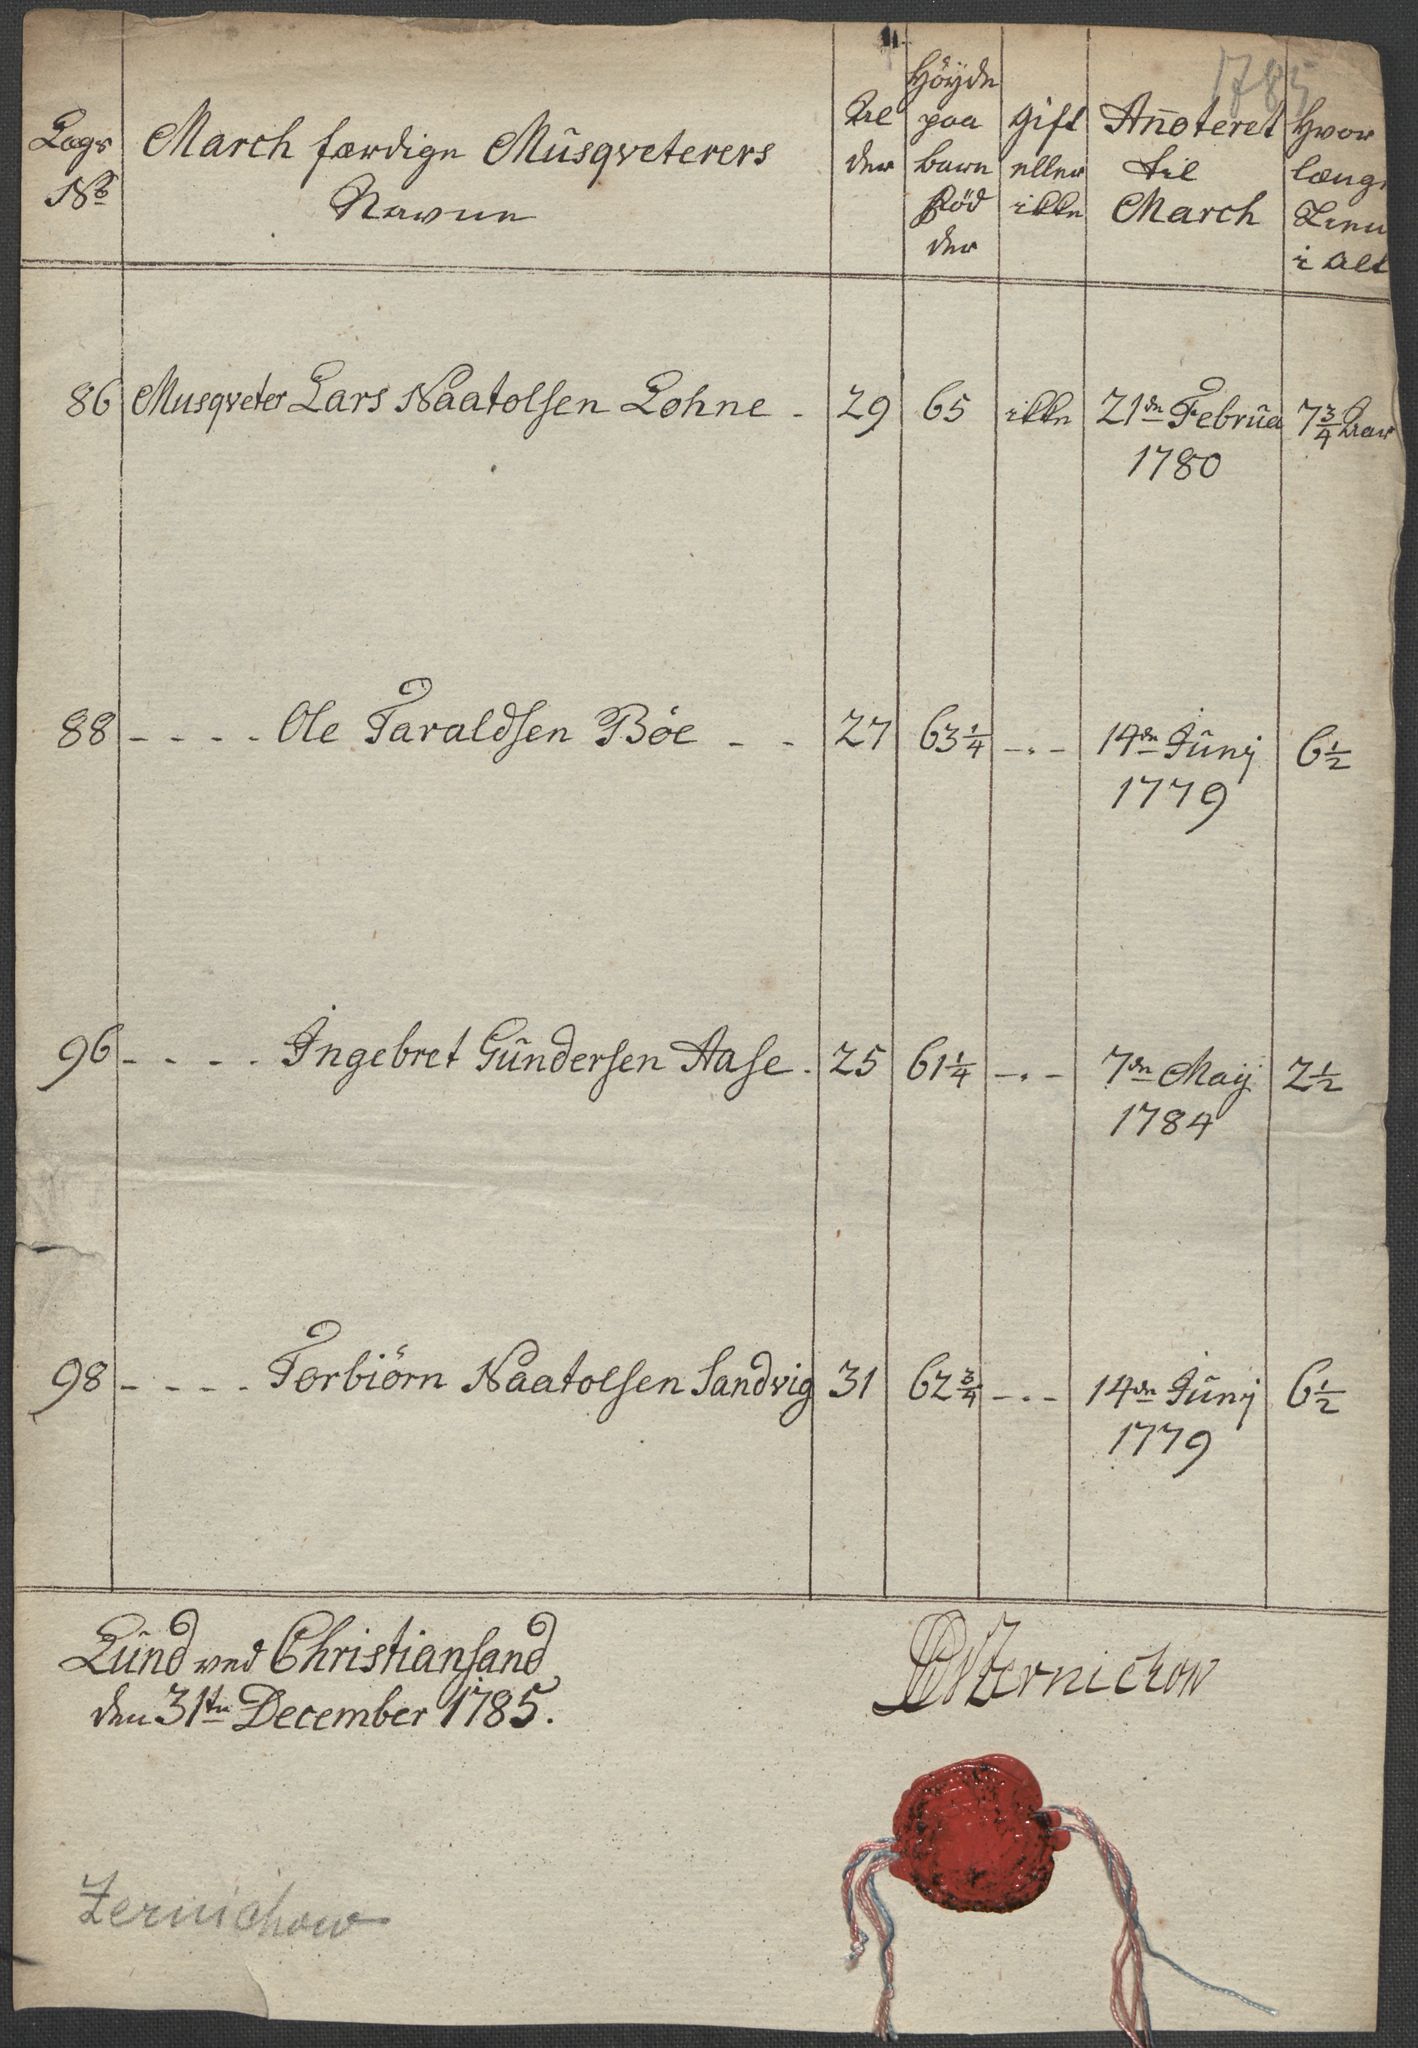 1785
Lægs No
March færdige Musqveterers Navne
Al der
Høyde paa bare Fød der
Gift eller ikke
Añoteret til March
Hvor længe Tient i Alt
86 Musqveter Lars Naatolsen Lohne - 29 65 ikke 21de Februa 7 3/4 Aar
1780
88 - - - - Ole Taraldsen Bøe - - 27 63 1/4 - . - 14de Junij 6 1/2
1779
96 - - - - Ingebret Gundersen Aase . 25 61 1/4 - . - 7de Maij 2 1/2
1784
98 - - - - Torbiørn Naatolsen Sandvig 31 62 3/4 - . - 14de Junij 6 1/2
1779
Lund ved Christiansand
den 31te December 1785.
Zernichow
Zernichow